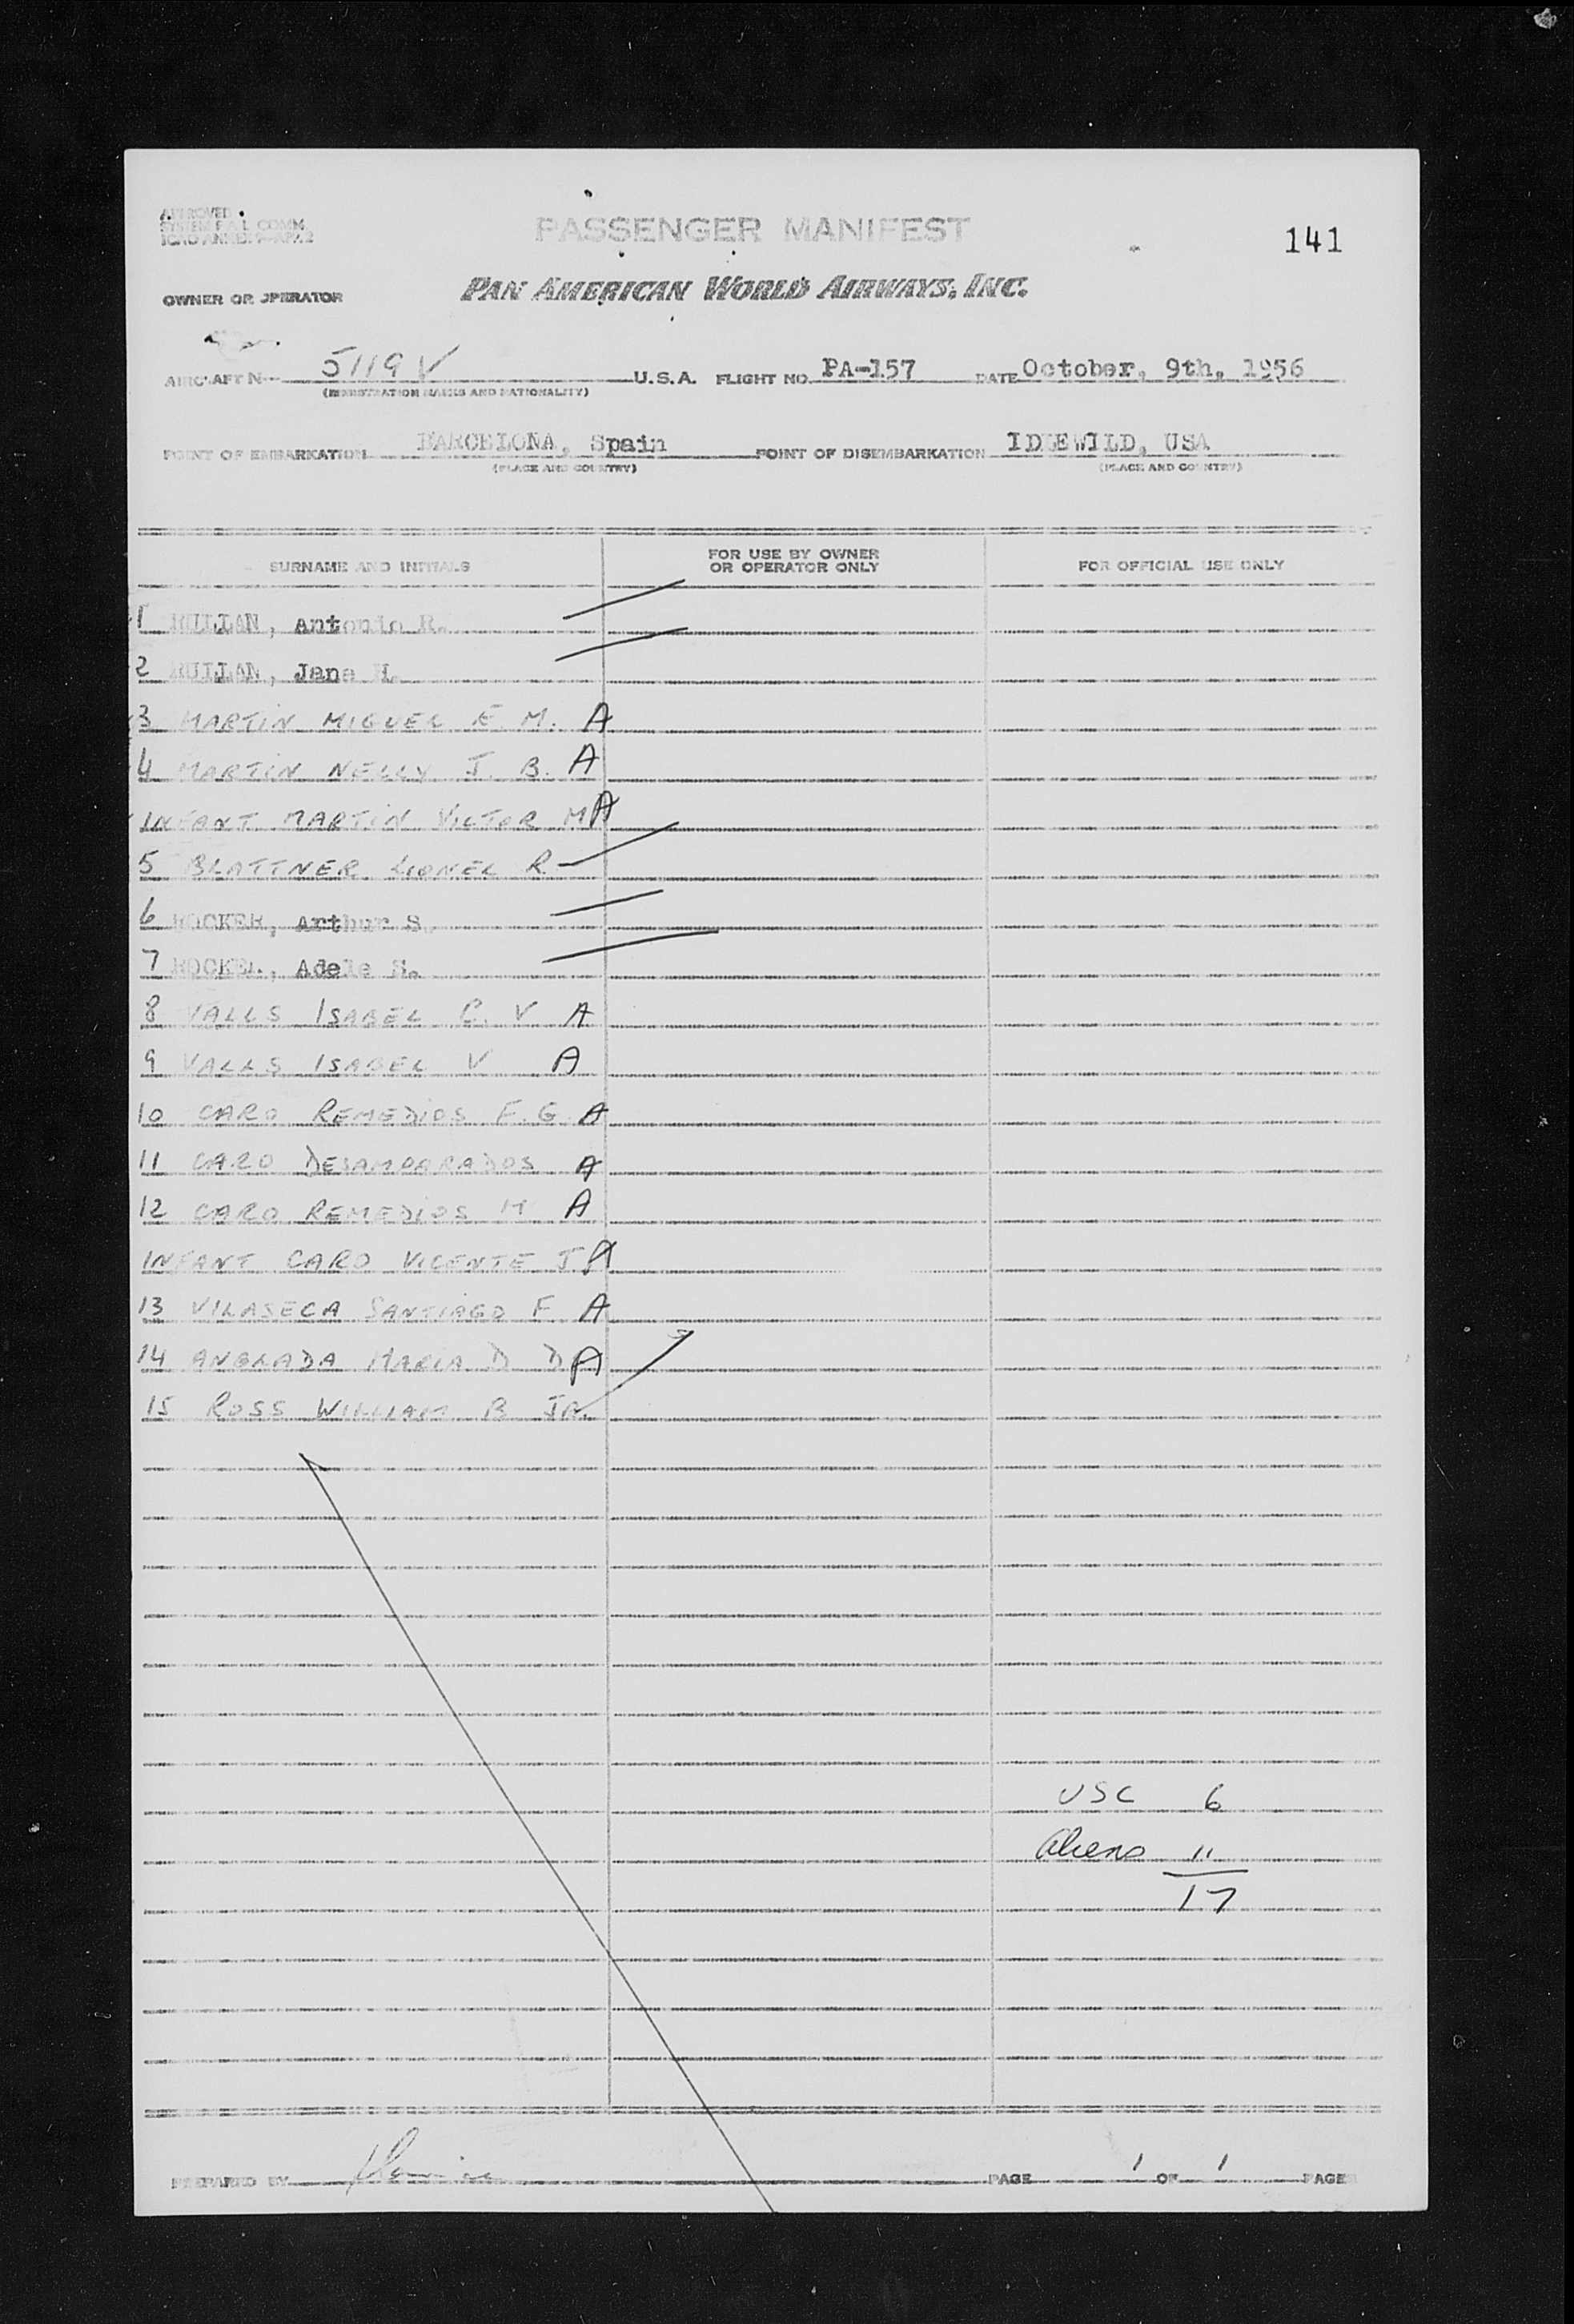 APPROVED
SYSTEM F.A.L. COMM.
ICAO ANNEX 9-APX.2
PASSENGER MANIFEST
141
OWNER OR OPERATOR PAN AMERICAN WORLD AIRWAYS, INC.
AIRCRAFT N 5119 V U.S.A. FLIGHT NO. PA-157 DATE October, 9th, 1956
(REGISTRATION MARKS AND NATIONALITY)
POINT OF EMBARKATION BARCELONA, Spain POINT OF DISEMBARKATION IDLEWILD, USA
(PLACE AND COUNTRY) (PLACE AND COUNTRY)
SURNAME AND INITIALS FOR USE BY OWNER OR OPERATOR ONLY FOR OFFICIAL USE ONLY
1 RULLAN, Antonio R.
2 RULLAN, Jane H.
3 MARTIN MIGUEL E. M. A
4 MARTIN NELLY J. B. A
INFANT MARTIN VICTOR M A
5 BLATTNER LIONEL R
6 ROCKER, Arthur S.
7 ROCKER, Adele S.
8 VALLS ISABEL C. V A
9 VALLS ISABEL V A
10 CARO REMEDIOS F. G A
11 CARO DESAMPARADOS A
12 CARO REMEDIOS M A
INFANT CARO VICENTE J A
13 VILASECA SANTIAGO F A
14 ANGLADA MARIA D D A
15 ROSS WILLIAM B JR.
USC 6
Aliens 11
17
PREPARED BY PAGE 1 OF 1 PAGE